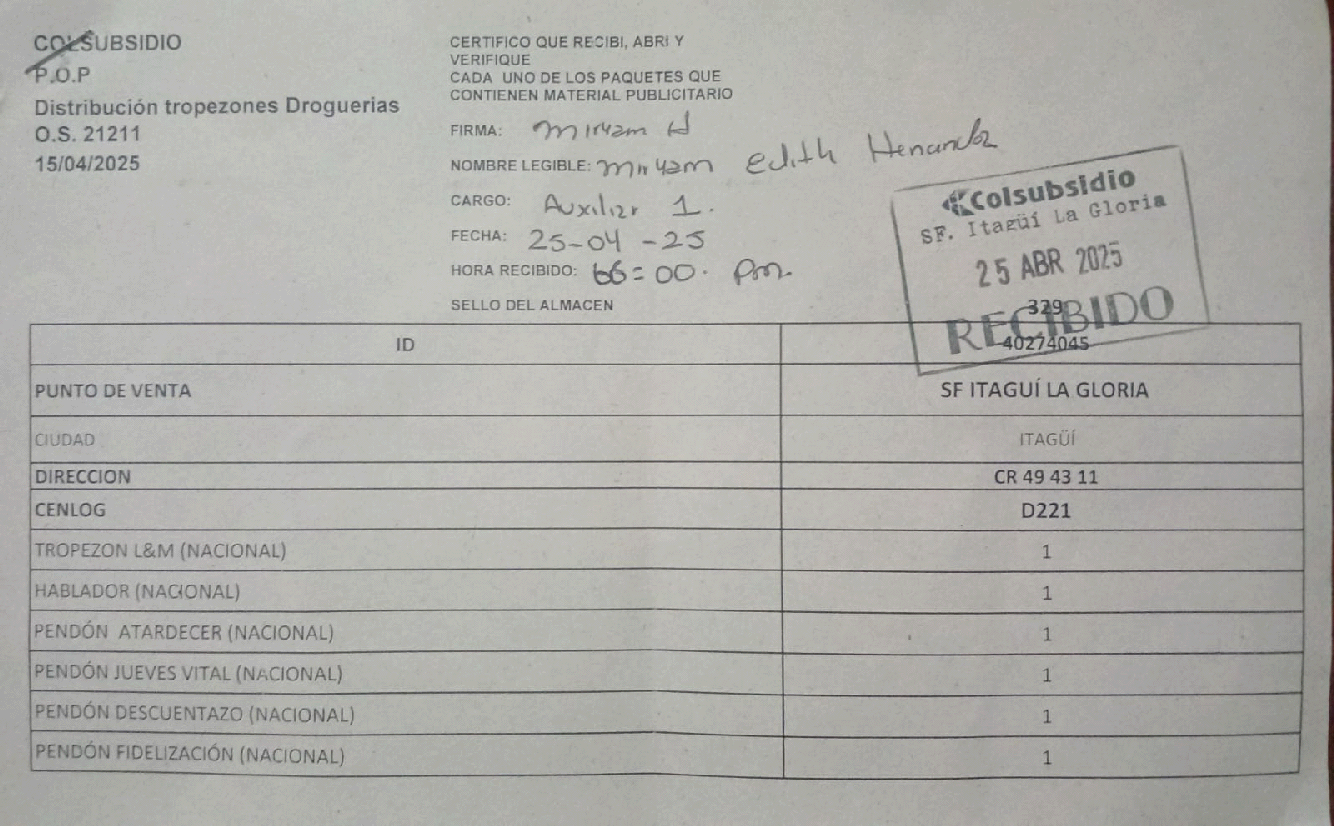 COLSUBSIDIO
P.O.P
Distribución tropezones Droguerias
O.S. 21211
15/04/2025
CERTIFICO QUE RECIBI, ABRI Y
VERIFIQUE
CADA UNO DE LOS PAQUETES QUE
CONTIENEN MATERIAL PUBLICITARIO
FIRMA: Miryam H
NOMBRE LEGIBLE: Miryam Edith
CARGO: Auxiliar 1.
FECHA: 25-04-25
HORA RECIBIDO: 66=00. Pm.
SELLO DEL ALMACEN
Colsubsidio
SF. Itagüí La Gloria
25 ABR 2025
RECIBIDO
329
ID 40274045
PUNTO DE VENTA SF ITAGUÍ LA GLORIA
CIUDAD ITAGÜÍ
DIRECCION CR 49 43 11
CENLOG D221
TROPEZON L&M (NACIONAL) 1
HABLADOR (NACIONAL) 1
PENDÓN ATARDECER (NACIONAL) 1
PENDÓN JUEVES VITAL (NACIONAL) 1
PENDÓN DESCUENTAZO (NACIONAL) 1
PENDÓN FIDELIZACIÓN (NACIONAL) 1